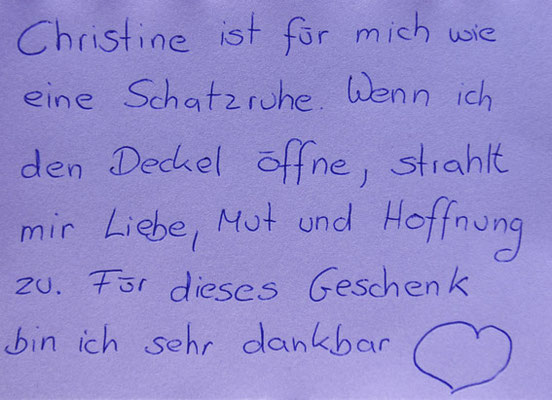 Christine ist für mich wie
eine Schatzruhe. Wenn ich
den Deckel öffne, strahlt
mir Liebe, Mut und Hoffnung
zu. Für dieses Geschenk
bin ich sehr dankbar